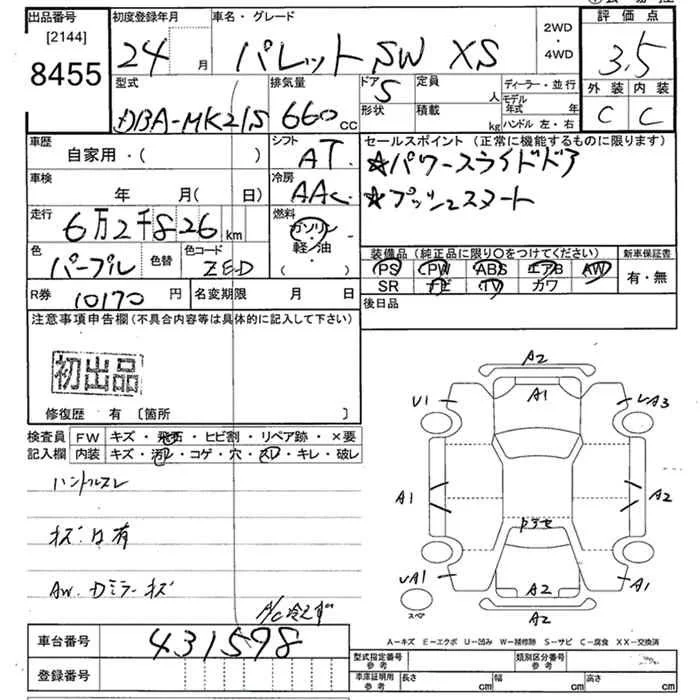 出品番号 初度登録年月 車名・グレード 2WD ・ 4WD 評価点
[2144] 8455 24 月 パレットSW XS 3.5
外装 内装
C C
型式 排気量 ドア 定員 ディーラー・並行
DBA-MK21S 660 CC 5 人 モデル年式 年
形状 積載 kg ハンドル 左・右
車歴 自家用・( ) シフト AT セールスポイント (正常に機能するものに限ります)
☆パワースライドドア
車検 年 月( 日) 冷房 AAC
☆プッシュスタート
走行 6万2千826 km 燃料 ガソリン 軽油 ・ ( )
色 パープル 色替 色コード ZED
装備品 (純正品に限り〇をつけてください) 新車保証書
PS PW ABS エアB AW 有・無
SR ナビ TV カワ
R券 10170 円 名変期限 月 日 後日品
注意事項申告欄(不具合内容等は具体的に記入して下さい)
初出品
修復歴 有 〔箇所 〕
検査員 FW キズ・飛石・ヒビ割・リペア跡・×要
記入欄 内装 キズ・汚レ・コゲ・穴・スレ・キレ・破レ
ハンドルスレ
キズ凹有
AW.Dミラーキズ
A/C冷えず
A2
U1 A1 UA3
A1 A2
UA1 A2 A1
スペア A2
A-キズ E-エクボ U-凹み W-補修跡 S-サビ C-腐食 XX-交換済
車台番号 431598
登録番号
型式指定番号 参考 類別区分番号 参考
車庫証明用 参考 長さ cm 幅 cm 高さ cm